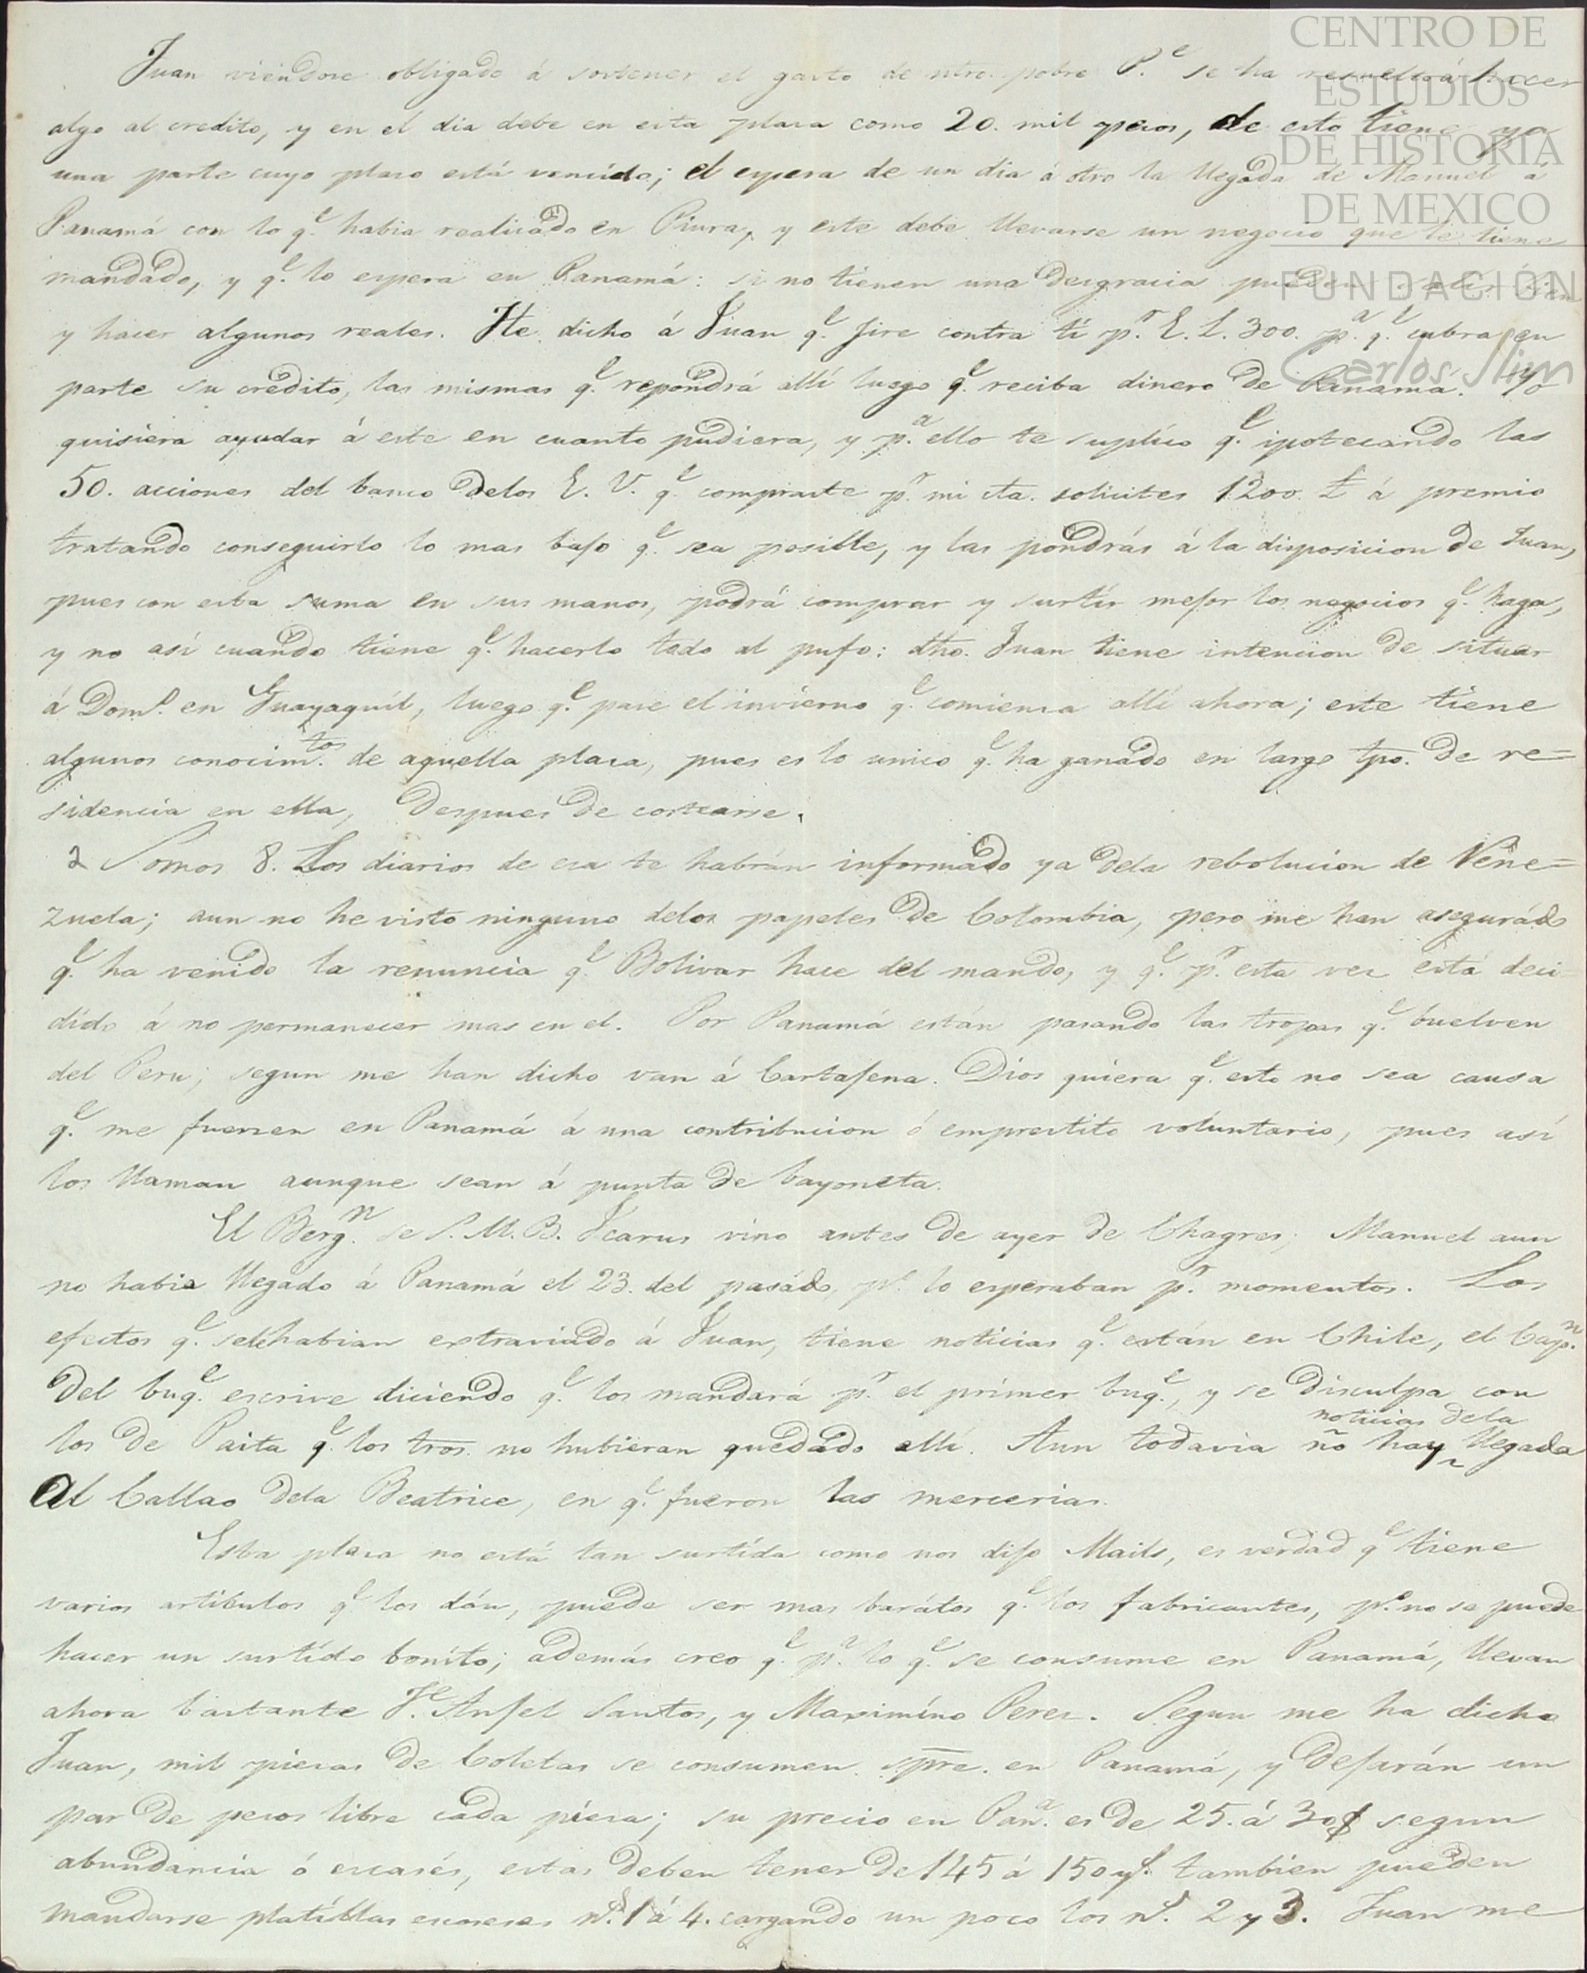 CENTRO DE
ESTUDIOS
DE HISTORIA
DE MEXICO
FUNDACIÓN
Carlos Slim
Juan viendose obligado á sostener el gasto de ntro. pobre P.e se ha resuelto á hacer
algo al credito, y en el dia debe en esta plaza como 20. mil pesos, de esto tiene ya
una parte cuyo plazo está vencido; el espera de un dia á otro la llegada de Manuel á
Panamá con lo q.e habia realizado en Piura, y este debe llevarse un negocio que le tiene
mandado, y q.e lo espera en Panamá: si no tienen una desgracia pueden salir bien
y hacer algunos reales. He dicho á Juan q.e jire contra ti p.r L. E. 300. p.a q.e cubra en
parte su credito, las mismas q.e repondrá allí luego q.e reciba dinero de Panamá. Yo
quisiera ayudar á este en cuanto pudiera, y p.a ello te suplico q.e ipotecando las
50. acciones del banco delos E. V. q.e compraste p.r mi cta. solicites 1200. £ á premio
tratando conseguirlo lo mas bajo q.e sea posible, y las pondrás á la disposicion de Juan,
pues con esta suma en sus manos, podrá comprar y surtir mejor los negocios q.e haga,
y no así cuando tiene q.e hacerlo todo al pufo: dho. Juan tiene intencion de situar
á Dom.o en Guayaquíl, luego q.e pase el invierno q.e comienza allí ahora; este tiene
algunos conocim.tos de aquella plaza, pues es lo unico q.e ha ganado en largo tpo. de re=
sidencia en ella, despues de costearse.
2 Somos 8. Los diarios de esa te habrán informado ya dela rebolucion de Vene=
zuela; aun no he visto ninguno delos papeles de Colombia, pero me han asegurado
q.e ha venido la renuncia q.e Bolivar hace del mando, y q.e p.r esta vez está deci=
dido á no permanecer mas en el. Por Panamá están pasando las tropas q.e buelven
del Peru; segun me han dicho van á Cartajena. Dios quiera q.e esto no sea causa
q.e me fuerzen en Panamá á una contribucion ó emprestito voluntario, pues así
los llaman aunque sean á punta de bayoneta.
El Berg.n de S. M. B. Icarus vino antes de ayer de Chagres; Manuel aun
no habia llegado á Panamá el 23. del pasado, p.o lo esperaban p.r momentos. Los
efectos q.e sele habian extraviado á Juan, tiene noticias q.e están en Chile, el Cap.n
del buq.e escrive diciendo q.e los mandará p.r el primer buq.e, y se disculpa con
los de Paita q.e los tros. no hubieran quedado allí. Aun todavia no hay noticias dela llegada
al Callao dela Beatrice, en q.e fueron las mercerias.
Esta plaza no está tan surtída como nos dijo Maits, es verdad q.e tiene
varios artículos q.e los dán, puede ser mas barátos q.e los fabricantes, p.o no se puede
hacer un surtído boníto; además creo q.e p.a lo q.e se consume en Panamá, llevan
ahora bastante J.e Anjel Santos, y Maximíno Perez. Segun me ha dicho
Juan, mil piezas de Coletas se consumen spre. en Panamá, y dejarán un
par de pesos libre cada pieza; su precio en Pan.a es de 25. á 30$ segun
abundancia ó escasés, estas deben tener de 145 á 150 y.s tambien pueden
mandarse platíllas escocesas n.s 1 á 4. cargando un poco los n.s 2 y 3. Juan me